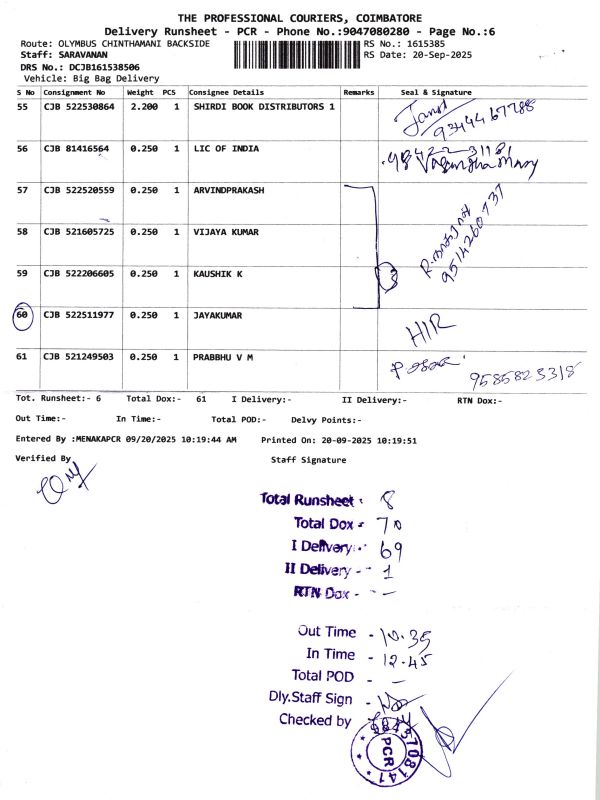 THE PROFESSIONAL COURIERS, COIMBATORE
Delivery Runsheet - PCR - Phone No.:9047080280 - Page No.:6
Route: OLYMBUS CHINTHAMANI BACKSIDE RS No.: 1615385
Staff: SARAVANAN RS Date: 20-Sep-2025
DRS No.: DCJB161538506
Vehicle: Big Bag Delivery
S No Consignment No Weight PCS Consignee Details Remarks Seal & Signature
55 CJB 522530864 2.200 1 SHIRDI BOOK DISTRIBUTORS 1
9344467788
56 CJB 81416564 0.250 1 LIC OF INDIA
98422 31181
57 CJB 522520559 0.250 1 ARVINDPRAKASH
58 CJB 521605725 0.250 1 VIJAYA KUMAR
59 CJB 522206605 0.250 1 KAUSHIK K 3
9514260737
60 CJB 522511977 0.250 1 JAYAKUMAR HIR
61 CJB 521249503 0.250 1 PRABBHU V M
9585823318
Tot. Runsheet:- 6 Total Dox:- 61 I Delivery:- II Delivery:- RTN Dox:-
Out Time:- In Time:- Total POD:- Delvy Points:-
Entered By :MENAKAPCR 09/20/2025 10:19:44 AM Printed On: 20-09-2025 10:19:51
Verified By Staff Signature
Total Runsheet - 8
Total Dox - 70
I Delivery - 69
II Delivery - 1
RTN Dox - -
Out Time - 10.35
In Time - 12.45
Total POD - -
Dly.Staff Sign -
Checked by
PCR